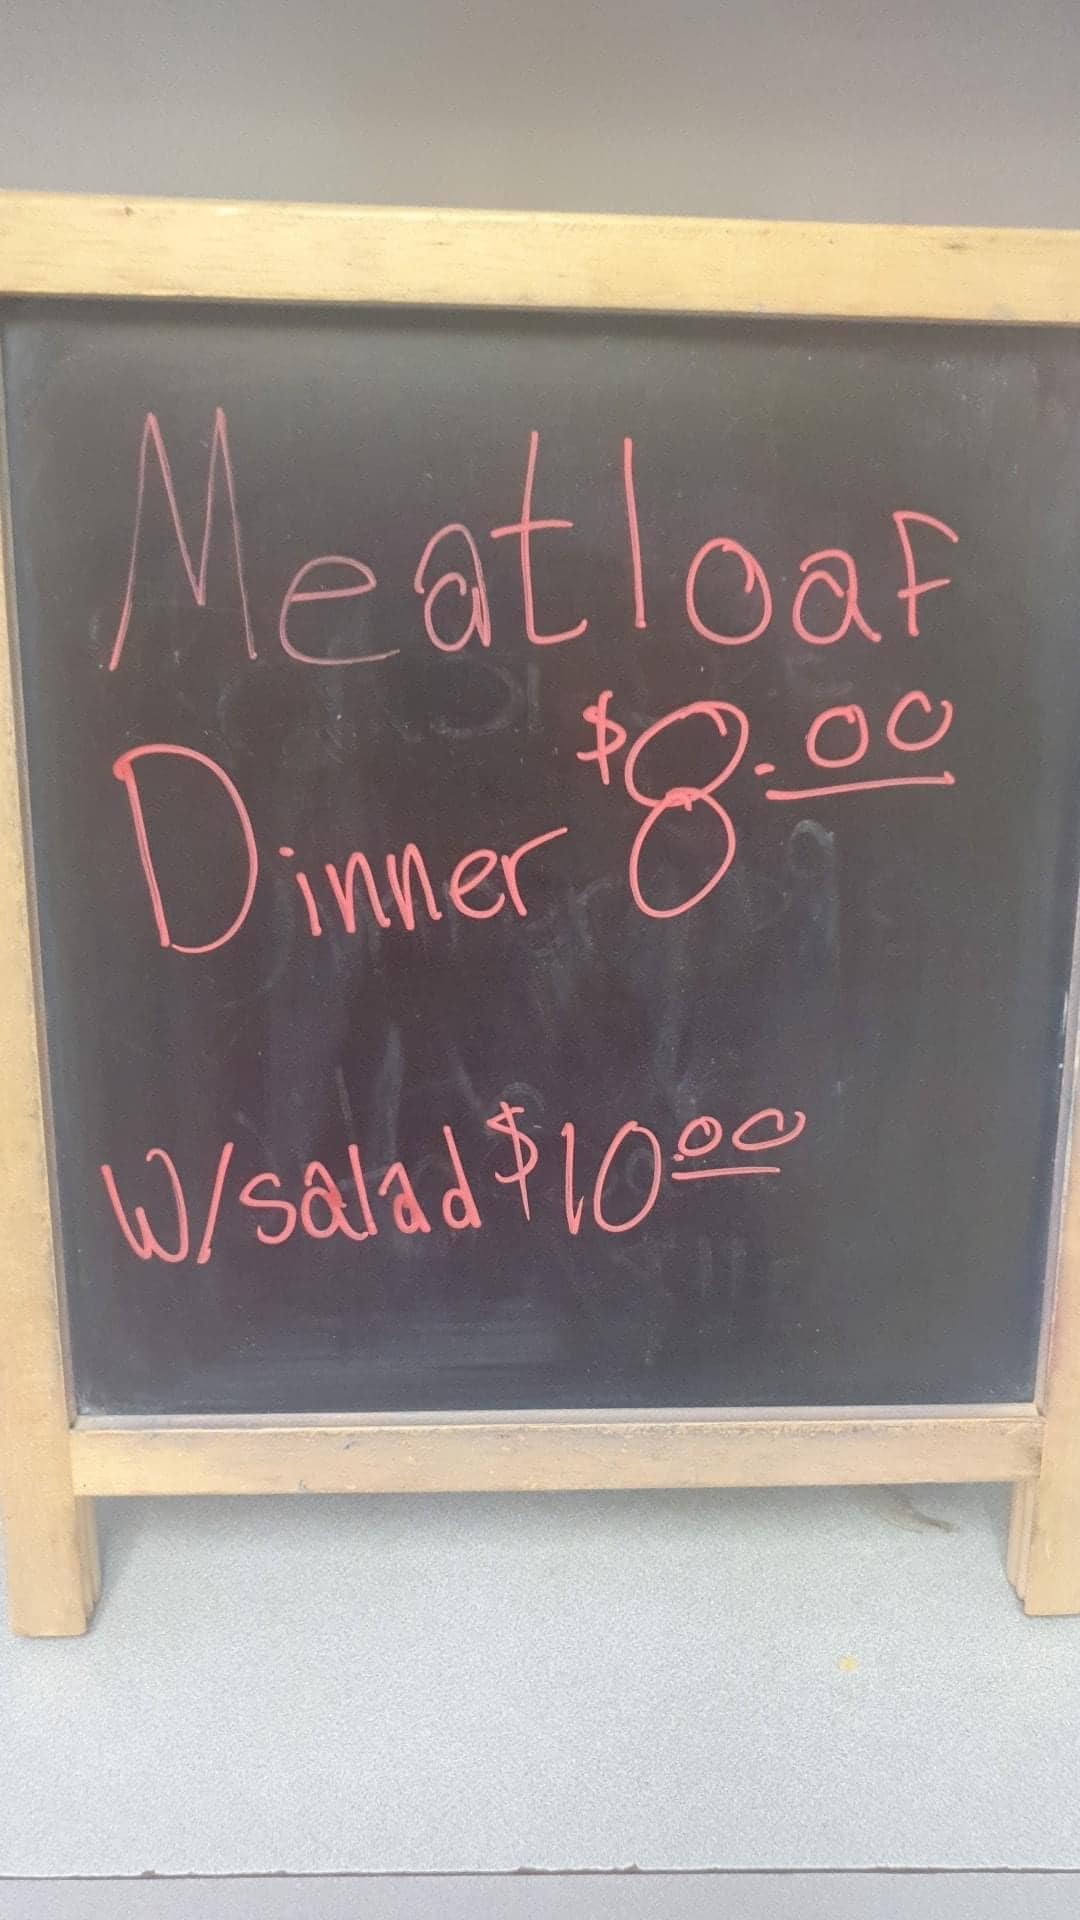 Meatloaf
Dinner $8.00
W/salad $10.00